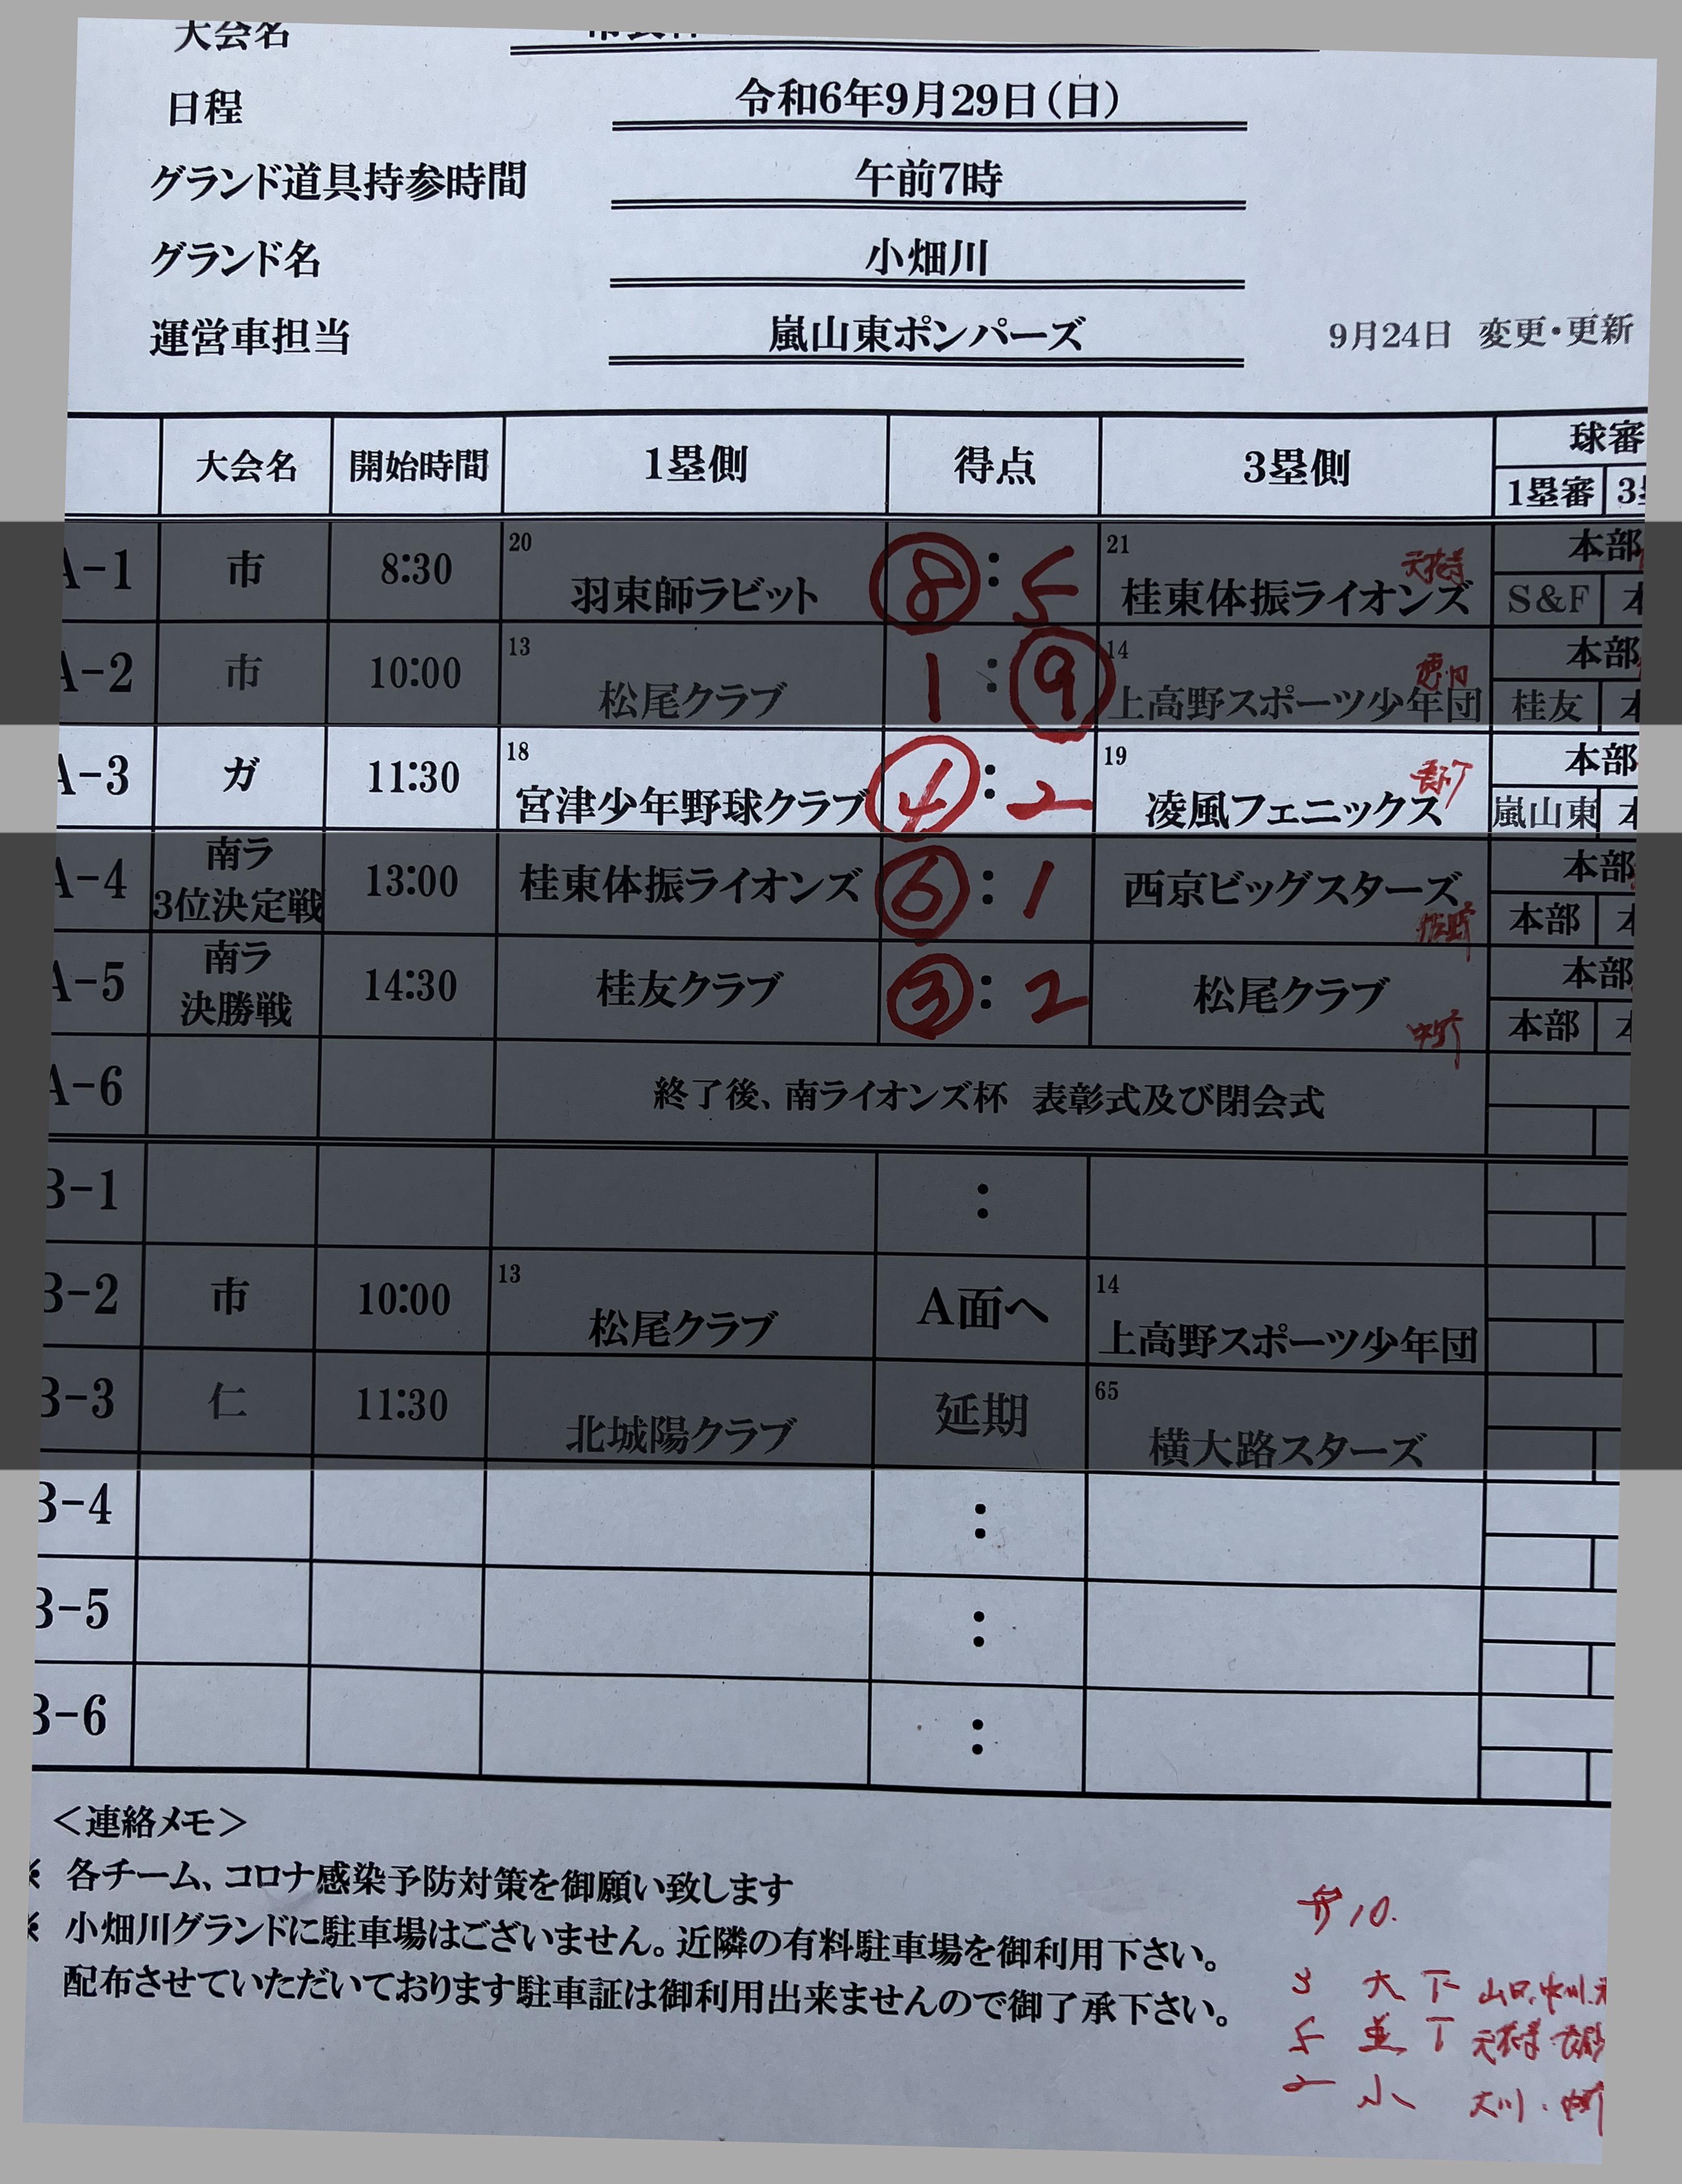 大会名
日程 令和6年9月29日(日)
グランド道具持参時間 午前7時
グランド名 小畑川
運営車担当 嵐山東ポンパーズ 9月24日 変更・更新
大会名 開始時間 1塁側 得点 3塁側 球審
1塁審
A-1 市 8:30 20 羽束師ラビット 8:5 21 桂東体振ライオンズ 本部
S&F
A-2 市 10:00 13 松尾クラブ 1:9 14 上高野スポーツ少年団 本部
桂友
A-3 ガ 11:30 18 宮津少年野球クラブ 4:2 19 凌風フェニックス 本部
嵐山東
A-4 南ラ 3位決定戦 13:00 桂東体振ライオンズ 6:1 西京ビッグスターズ 本部
本部
A-5 南ラ 決勝戦 14:30 桂友クラブ 3:2 松尾クラブ 本部
本部
A-6 終了後、南ライオンズ杯 表彰式及び閉会式
B-1 :
B-2 市 10:00 13 松尾クラブ A面へ 14 上高野スポーツ少年団
B-3 仁 11:30 北城陽クラブ 延期 65 横大路スターズ
B-4 :
B-5 :
B-6 :
<連絡メモ>
※ 各チーム、コロナ感染予防対策を御願い致します
※ 小畑川グランドに駐車場はございません。近隣の有料駐車場を御利用下さい。
配布させていただいております駐車証は御利用出来ませんので御了承下さい。
弁10.
3 大 下 山口.中川.
5 並 丁
2 小 大川.